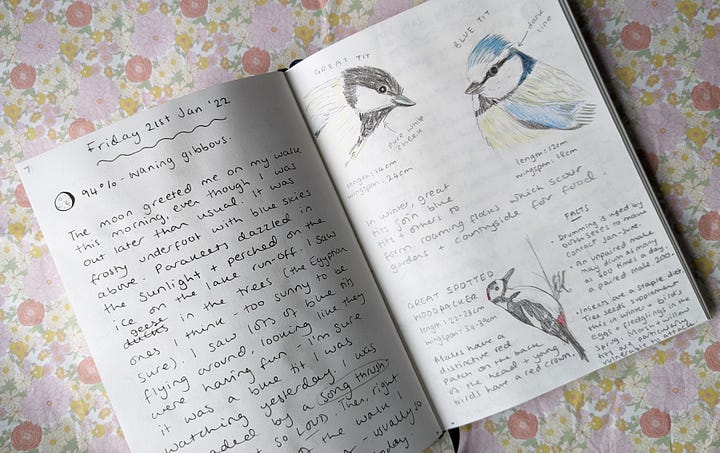 7.
Friday 21st Jan '22
94% - waning gibbous.
The moon greeted me on my walk
this morning, even though I was
out later than usual. It was
frosty underfoot with blue skies
above. Parakeets dazzled in
the sunlight + perched on the
ice on the lake run-off. I saw
geese in the trees (the Egyptian
ones I think - too sunny to be
sure). I saw lots of blue tits
flying around, looking like they
were having fun - I'm sure
it was a blue tit I was
watching yesterday. I was
by a song thrush
so LOUD. Then, right
of the walk I
- usually so
today
GREAT TIT
pure white
cheek
length: 14cm
wingspan: 24cm
BLUE TIT
dark
line
length: 12cm
wingspan: 18cm
In winter, great
tits join blue
tits & others to
form roaming flocks which scour
gardens & countryside for food.
GREAT SPOTTED
WOODPECKER
length: 22-23cm
wingspan: 34-39cm
Males have a
distinctive red
patch on the back
of the head & young
birds have a red crown.
FACTS
Drumming is used by
both sexes to make
contact Jan-June.
An unpaired male
may drum as many
as 600 times a day.
a paired male, 200.
Insects are a staple diet
Tree seeds supplement
this in winter & birds
eggs & fledglings in the
spring. Marsh & willow
tits are particularly
vulnerable to attack